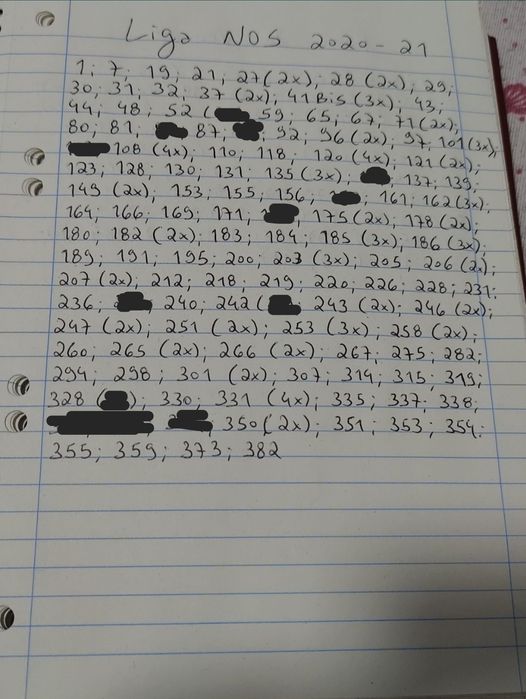 Liga NOS 2020-21
1; 7; 19; 21; 27(2x); 28 (2x); 29;
30; 31; 32; 37 (2x); 41 Bis (3x); 43;
44; 48; 52 ( 59; 65; 67; 71(2x);
80; 81; 87; 92; 96 (2x); 97; 101(3x);
108 (4x); 110; 118; 120 (4x); 121 (2x);
123; 128; 130; 131; 135 (3x); 137; 139;
149 (2x); 153; 155; 156; 161; 162(3x);
164; 166; 169; 171; 175(2x); 178 (2x);
180; 182 (2x); 183; 184; 185 (3x); 186 (3x);
189; 191; 195; 200; 203 (3x); 205; 206 (2x);
207 (2x); 212; 218; 219; 220; 226; 228; 231;
236; 240; 242 ( 243 (2x); 246 (2x);
247 (2x); 251 (2x); 253 (3x); 258 (2x);
260; 265 (2x); 266 (2x); 267; 275; 282;
294; 298; 301 (2x); 307; 314; 315; 319;
328 ( ); 330; 331 (4x); 335; 337; 338;
350 (2x); 351; 353; 354;
355; 359; 373; 382